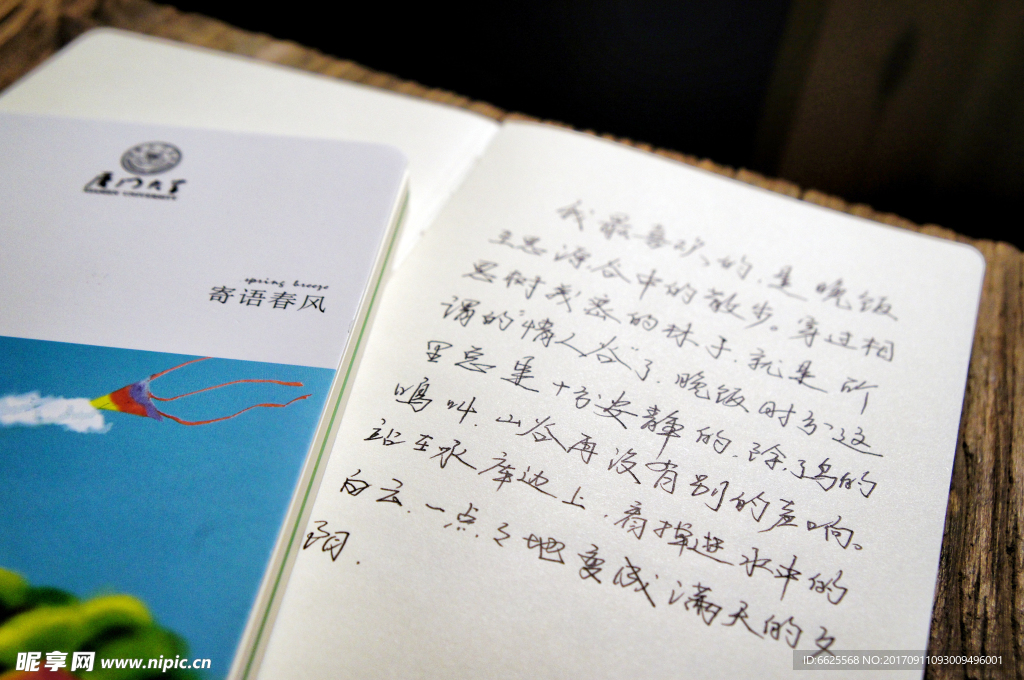 厦门大学
XIAMEN UNIVERSITY
spring breeze
寄语春风
我最喜欢的,是晚饭
王思源谷中的散步。穿过相
思树成密的林子,就是所
谓的“情人谷”了,晚饭时分,这
里总是十分安静的,除了鸟的
鸣叫,山谷再没有别的声响。
站在水库边上,看掉进水中的
白云,一点点地变成满天的夕
阳.
昵享网 www.nipic.cn
ID:6625568 NO:20170911093009496001